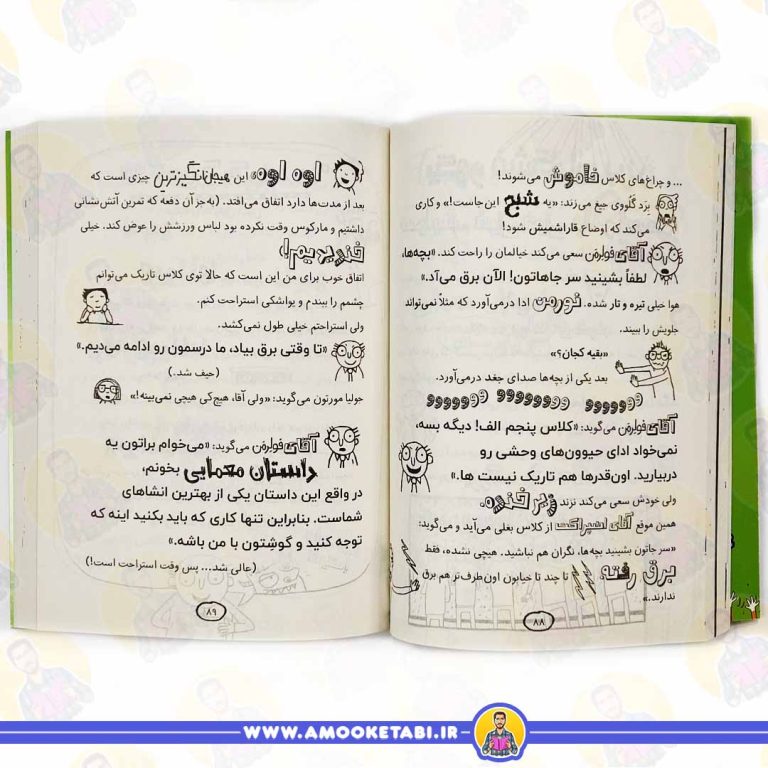 ... و چراغ‌های کلاس خاموش می‌شوند!
بِرَد گلووی جیغ می‌زند: «یه شبح این‌جاست!» و کاری
می‌کند که اوضاع قاراشمیش شود!
آقای فولرمن سعی می‌کند خیالمان را راحت کند. «بچه‌ها،
لطفاً بشینید سر جاهاتون! الآن برق می‌آد.»
هوا خیلی تیره و تار شده. نورمن ادا درمی‌آورد که مثلاً نمی‌تواند
جلویش را ببیند.
«بقیه کجان؟»
بعد یکی از بچه‌ها صدای جغد درمی‌آورد.
آقای فولرمن می‌گوید: «کلاس پنجم الف! دیگه بسه،
نمی‌خواد ادای حیوون‌های وحشی رو
دربیارید. اون‌قدرها هم تاریک نیست ها.»
ولی خودش سعی می‌کند نزند زیر خنده.
همین موقع آقای اسپراکت از کلاس بغلی می‌آید و می‌گوید:
«سر جاتون بشینید بچه‌ها، نگران هم نباشید. هیچی نشده، فقط
برق رفته تا چند تا خیابون اون‌طرف‌تر هم برق
ندارند.»
۸۸
اوه اوه! این هیجان‌انگیزترین چیزی است که
بعد از مدت‌ها دارد اتفاق می‌افتد. (به‌جز آن دفعه که تمرین آتش‌نشانی
داشتیم و مارکوس وقت نکرده بود لباس ورزشش را عوض کند. خیلی
خندیدیم!)
اتفاق خوب برای من این است که حالا توی کلاس تاریک می‌توانم
چشمم را ببندم و یواشکی استراحت کنم.
ولی استراحتم خیلی طول نمی‌کشد.
«تا وقتی برق بیاد، ما درسمون رو ادامه می‌دیم.»
(حیف شد.)
جولیا مورتون می‌گوید: «ولی آقا، هیچ‌کی هیچی نمی‌بینه!»
آقای فولرمن می‌گوید: «می‌خوام براتون یه
داستان معمایی بخونم،
در واقع این داستان یکی از بهترین انشاهای
شماست. بنابراین تنها کاری که باید بکنید اینه که
توجه کنید و گوشِتون با من باشه.»
(عالی شد... پس وقت استراحت است!)
۸۹
WWW.AMOOKETABI.IR